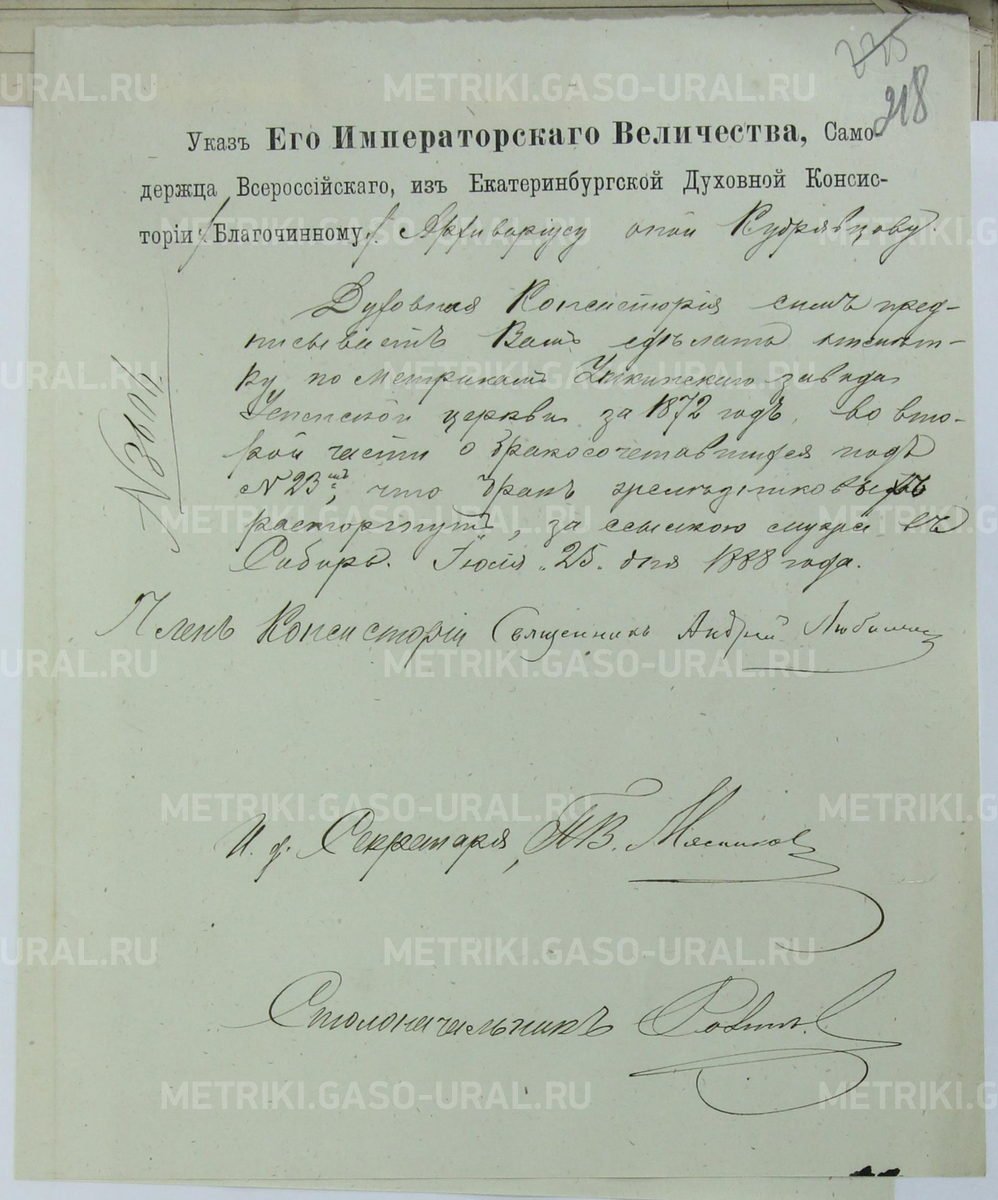 225
218
Указъ Его Императорскаго Величества, Само-
держца Всероссійскаго, изъ Екатеринбургской Духовной Консис-
торіи Благочинному Архиваріусу оной Кудрявцову.
Духовная Консисторія симъ пред-
писываетъ Вамъ сдѣлать отмѣт-
ку по метрикамъ Уткинскаго завода
Успенской церкви за 1872 годъ, во вто-
рой части о бракосочетавшихся подъ
№ 23мъ, что бракъ
расторгнутъ, за ссылкою мужа въ
Сибирь. Іюля 25 дня 1888 года.
№
Членъ Консисторіи Священникъ Андрей
И. д. Секретаря,
Столоначальникъ
METRIKI.GASO-URAL.RU